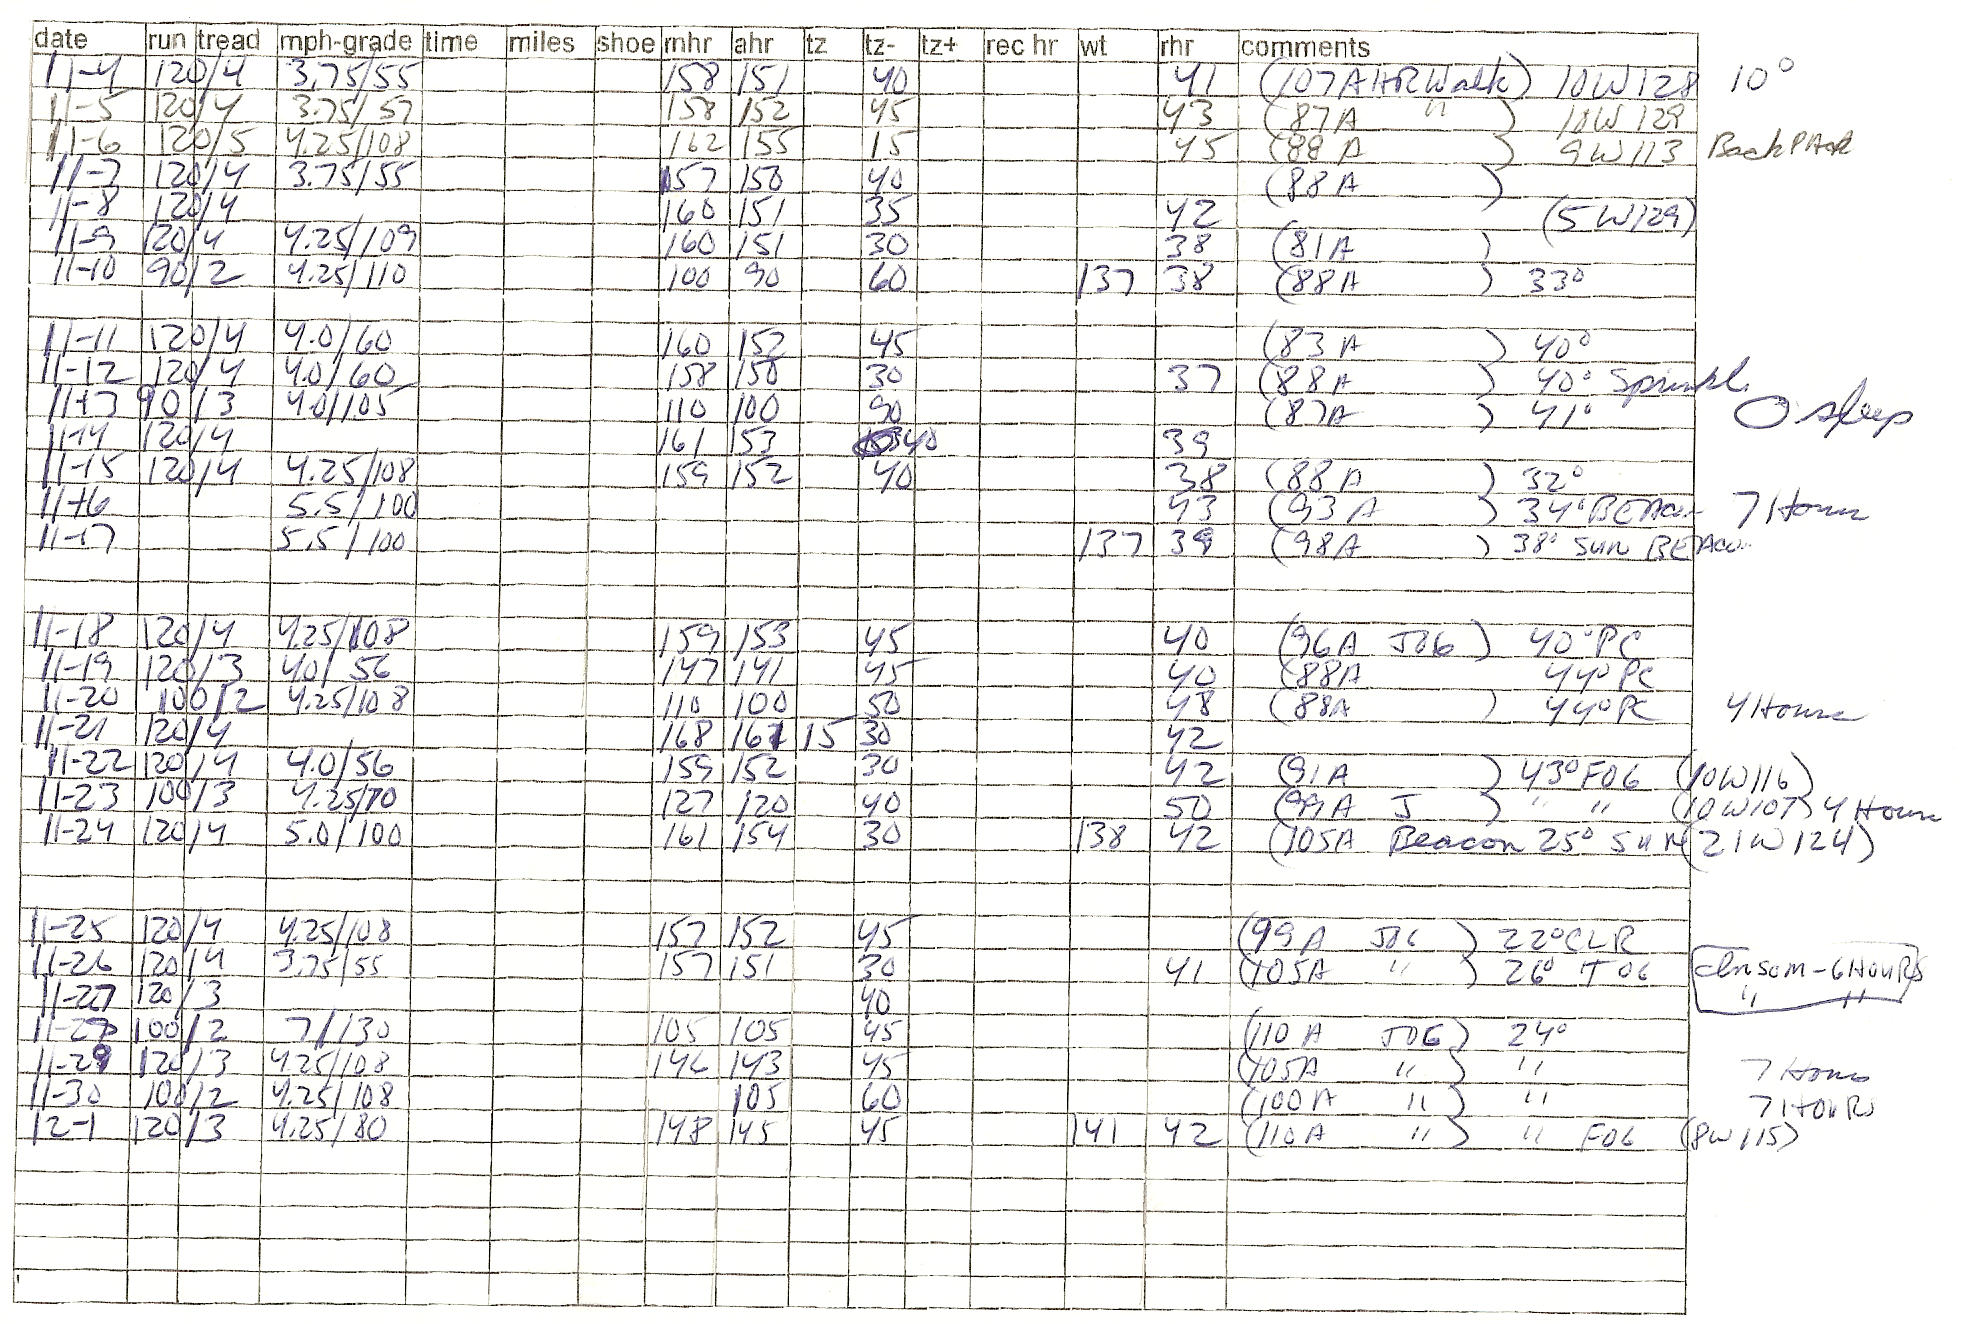 date run tread mph-grade time miles shoe mhr ahr tz tz- tz+ rec hr wt rhr comments
11-4 120/4 3.75/55 158 151 40 41 (107AHRWalk) 10W128 10°
11-5 120/4 3.75/57 158 152 45 43 (87A " ) 10W129
11-6 120/5 4.25/108 162 155 15 45 (88A ) 9W113 BackPack
11-7 120/4 3.75/55 157 150 40 (88A )
11-8 120/4 160 151 35 42 (5W129)
11-9 120/4 4.25/109 160 151 30 38 (81A )
11-10 90/2 4.25/110 100 90 60 137 38 (88A ) 33°
11-11 120/4 4.0/60 160 152 45 (83A ) 40°
11-12 120/4 4.0/60 158 150 30 37 (88A ) 40° Sprinkl
11-13 90/3 4.0/105 110 100 90 (87A ) 41° O sleep
11-14 120/4 161 153 40 39
11-15 120/4 4.25/108 159 152 40 38 (88A ) 32°
11-16 5.5/100 43 (93A ) 34° BEACon 7 Hours
11-17 5.5/100 137 39 (98A ) 38° SUN BEACon
11-18 120/4 4.25/108 159 153 45 40 (96A JOG ) 40° PC
11-19 120/3 4.0/56 147 141 45 40 (88A 44° PC
11-20 100/2 4.25/108 110 100 50 48 (88A ) 44° PC 4 Hours
11-21 120/4 168 161 15 30 42
11-22 120/4 4.0/56 159 152 30 42 (91A ) 43° FOG (10W116)
11-23 100/3 4.25/70 127 120 40 50 (99A J ) " " (10W107) 4 Hours
11-24 120/4 5.0/100 161 154 30 138 42 (105A Beacon 25° SUN (21W124)
11-25 120/4 4.25/108 157 152 45 (99A JOG ) 22° CLR
11-26 120/4 3.75/55 157 151 30 41 (105A " ) 26° FOG - 6 HOURS
11-27 120/3 40 " "
11-28 100/2 7/130 105 105 45 (110A JOG) 24°
11-29 120/3 4.25/108 146 143 45 (105A " ) " 7 Hours
11-30 100/2 4.25/108 105 60 (100A " ) " 7 HOURS
12-1 120/3 4.25/80 148 145 45 141 42 (110A " ) " FOG (8W115)